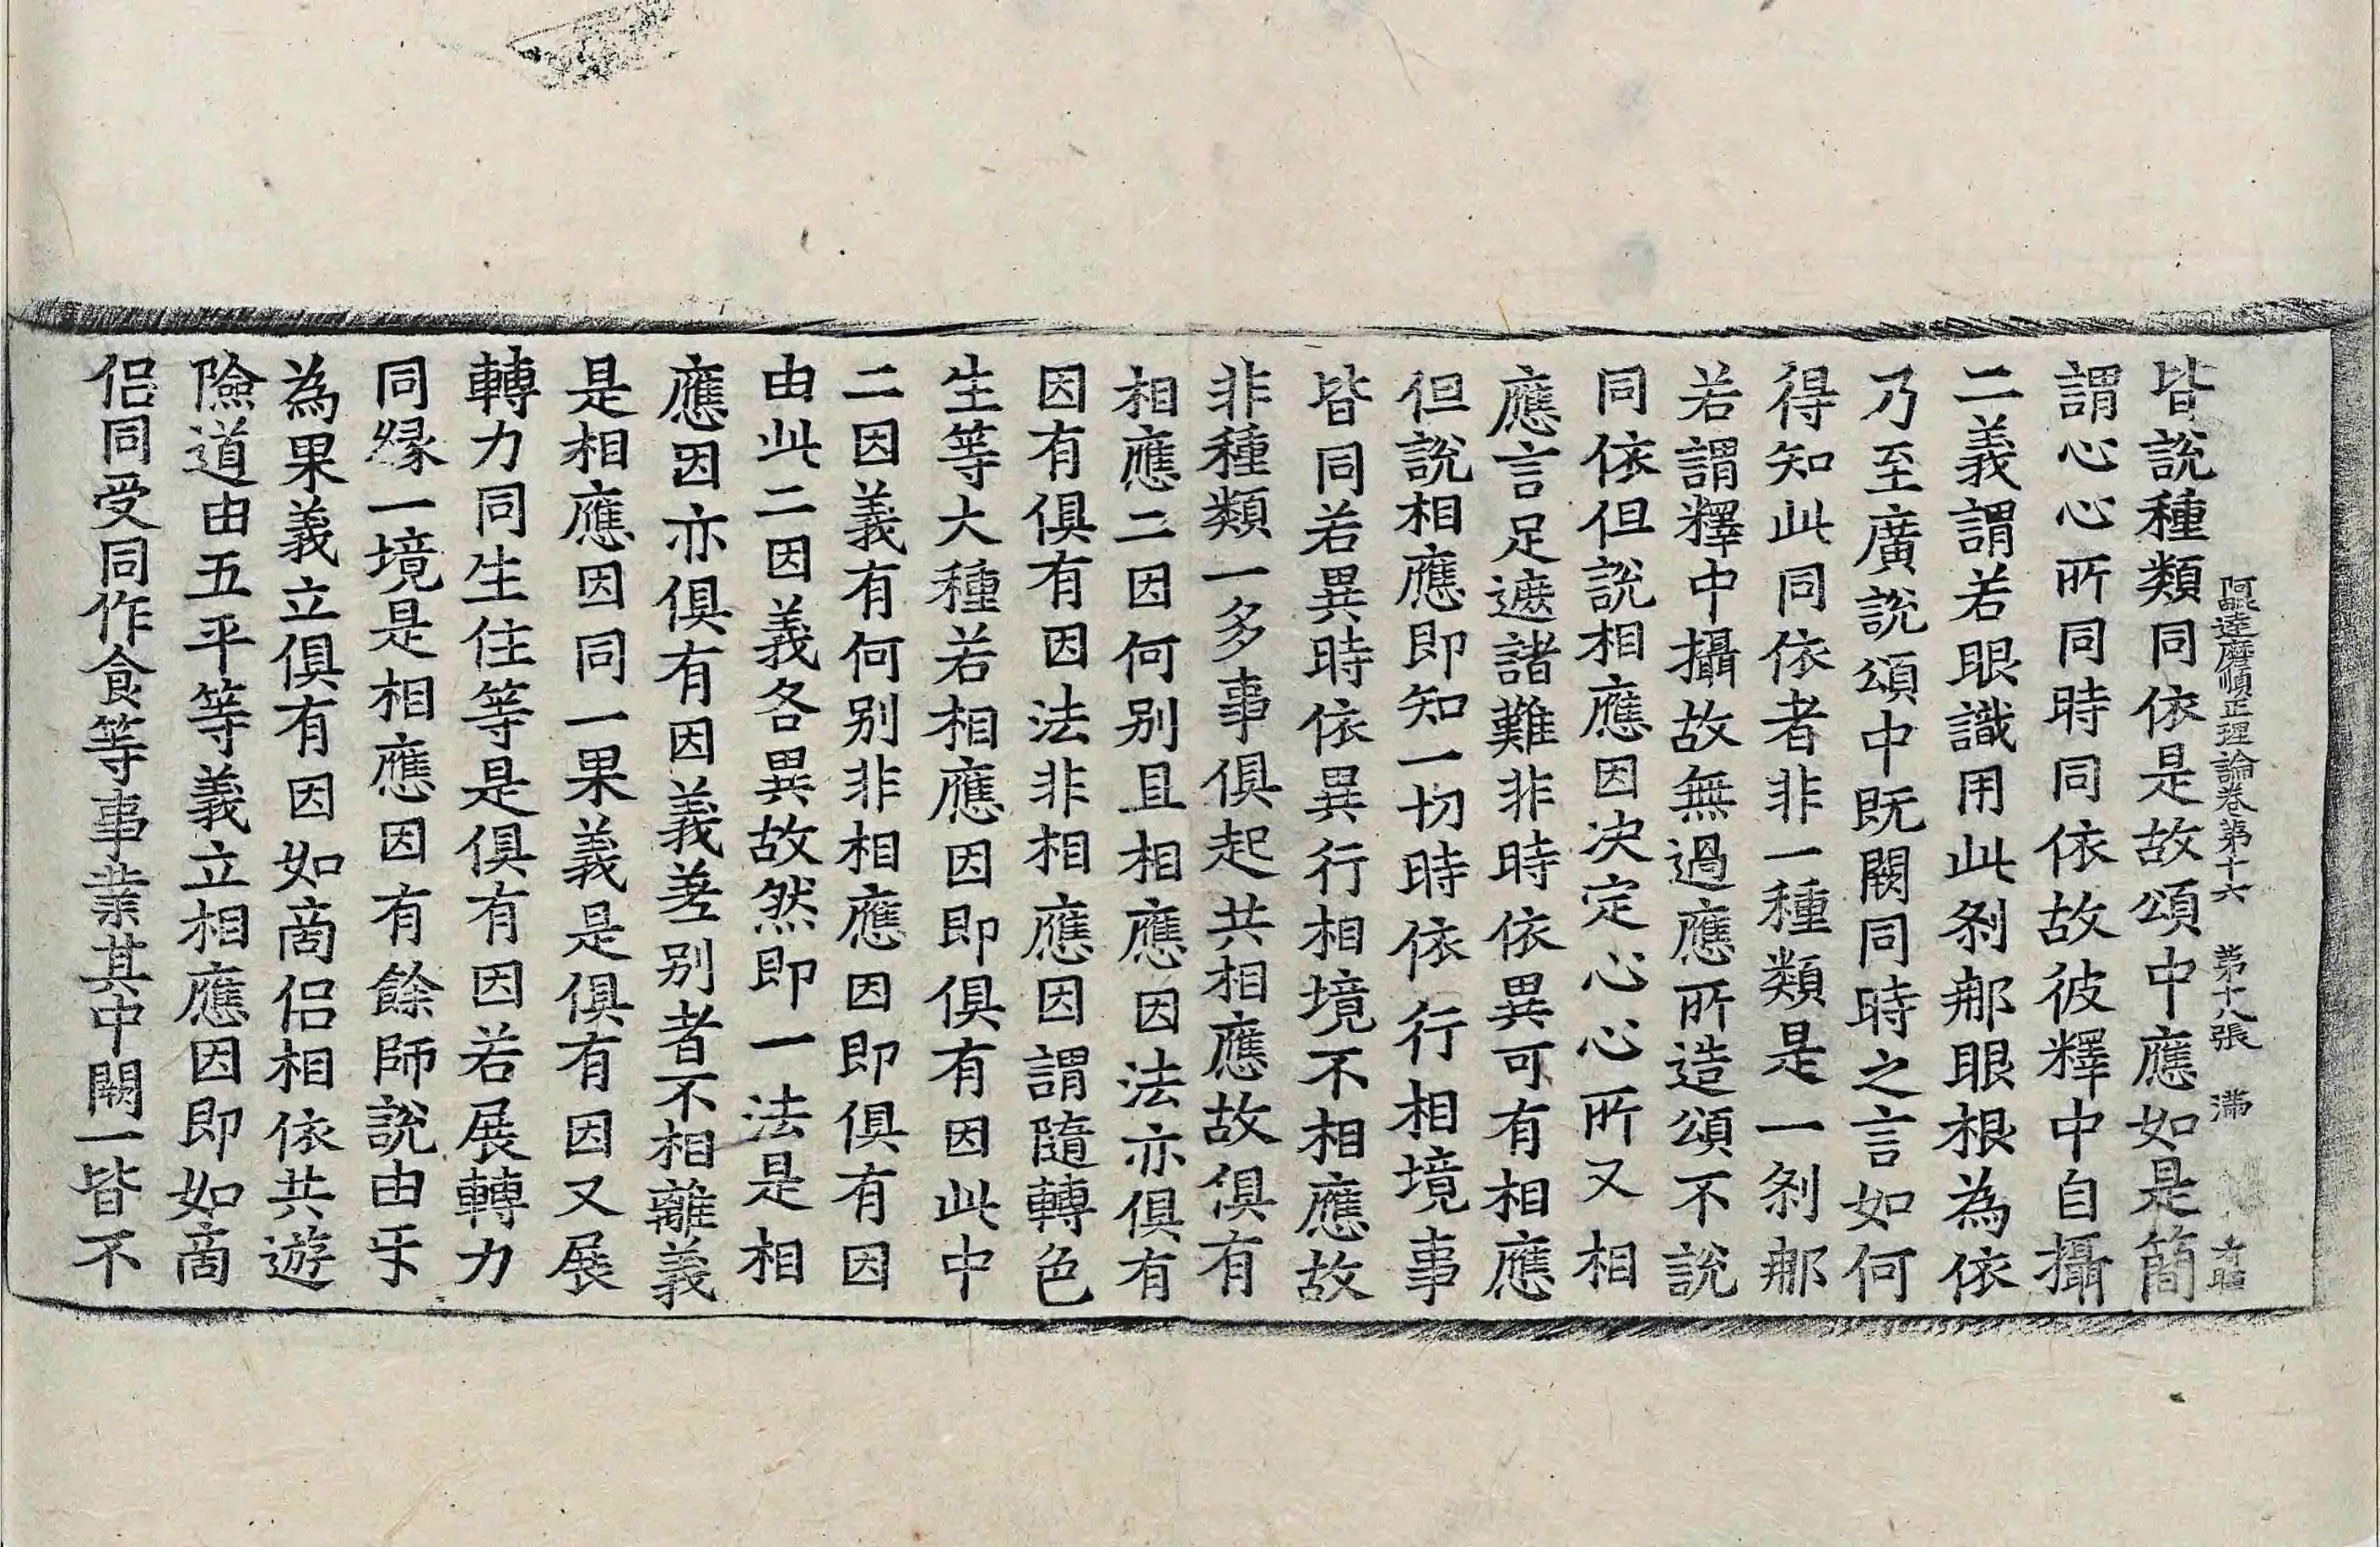 阿毗達磨順正理論卷第十六 第十八張 滿
皆說種類同依是故頌中應如是簡
謂心心所同時同依故彼釋中自攝
二義謂若眼識用此刹那眼根為依
乃至廣說頌中既闕同時之言如何
得知此同依者非一種類是一刹那
若謂釋中攝故無過應所造頌不說
同依但說相應因决定心心所又相
應言足遮諸難非時依異可有相應
但說相應即知一切時依行相境事
皆同若異時依異行相境不相應故
非種類一多事俱起共相應故俱有
相應二因何别且相應因法亦俱有
因有俱有因法非相應因謂隨轉色
生等大種若相應因即俱有因此中
二因義有何别非相應因即俱有因
由此二因義各異故然即一法是相
應因亦俱有因義差别者不相離義
是相應因同一果義是俱有因又展
轉力同生住等是俱有因若展轉力
同緣一境是相應因有餘師說由㸦
為果義立俱有因如商侶相依共遊
險道由五平等義立相應因即如商
侶同受同作食等事業其中闕一皆不